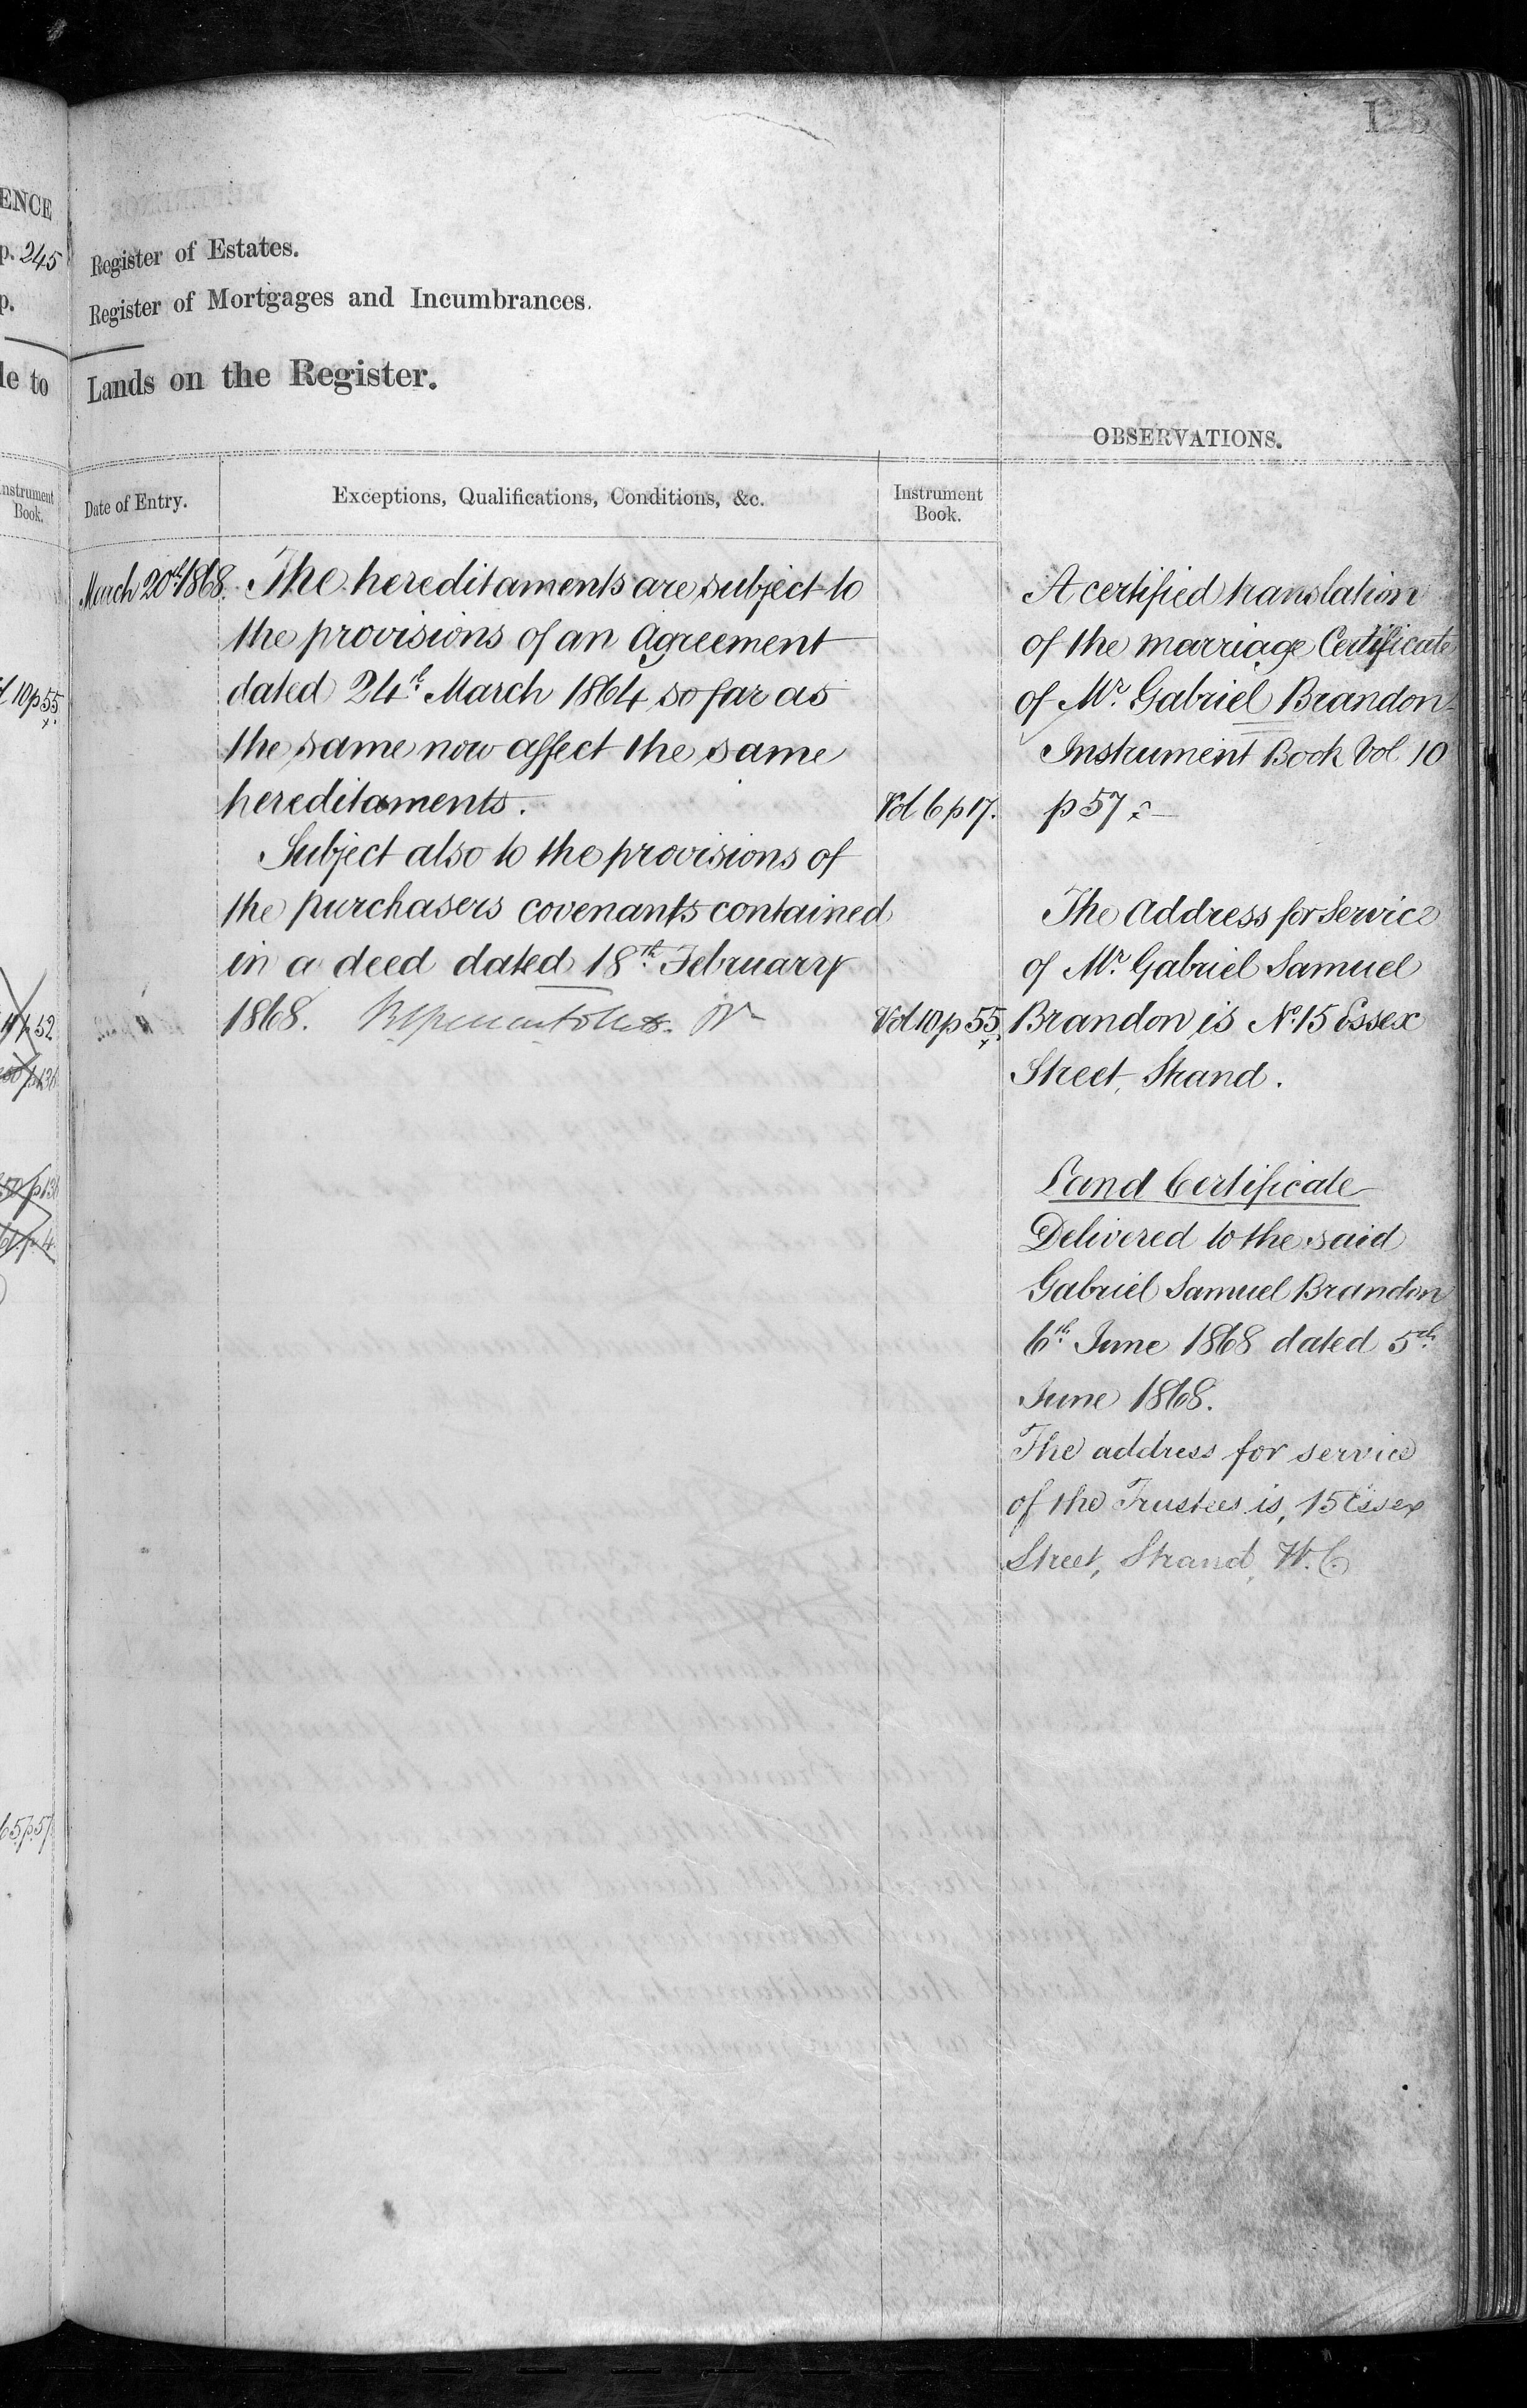 ENCE
p. 245
p.
le to
Instrument
Book.
10 p 55
p 52
p 4
65 p 57
Register of Estates.
Register of Mortgages and Incumbrances.
Lands on the Register.
OBSERVATIONS.
Date of Entry.
Exceptions, Qualifications, Conditions, &c.
Instrument
Book.
March 20th 1868.
The hereditaments are subject to
the provisions of an Agreement
dated 24th March 1864 so far as
the same now affect the same
hereditaments.
Vol 6 p 17.
Subject also to the provisions of
the purchasers covenants contained
in a deed dated 18th February
1868.
Vol 10 p 55
A certified translation
of the marriage Certificate
of Mr. Gabriel Brandon
Instrument Book Vol 10
p 57
The Address for Service
of Mr. Gabriel Samuel
Brandon is No. 15 Essex
Street, Strand.
Land Certificate
Delivered to the said
Gabriel Samuel Brandon
6th June 1868 dated 5th
June 1868.
The address for service
of the Trustees is, 15 Essex
Street, Strand, W.C.